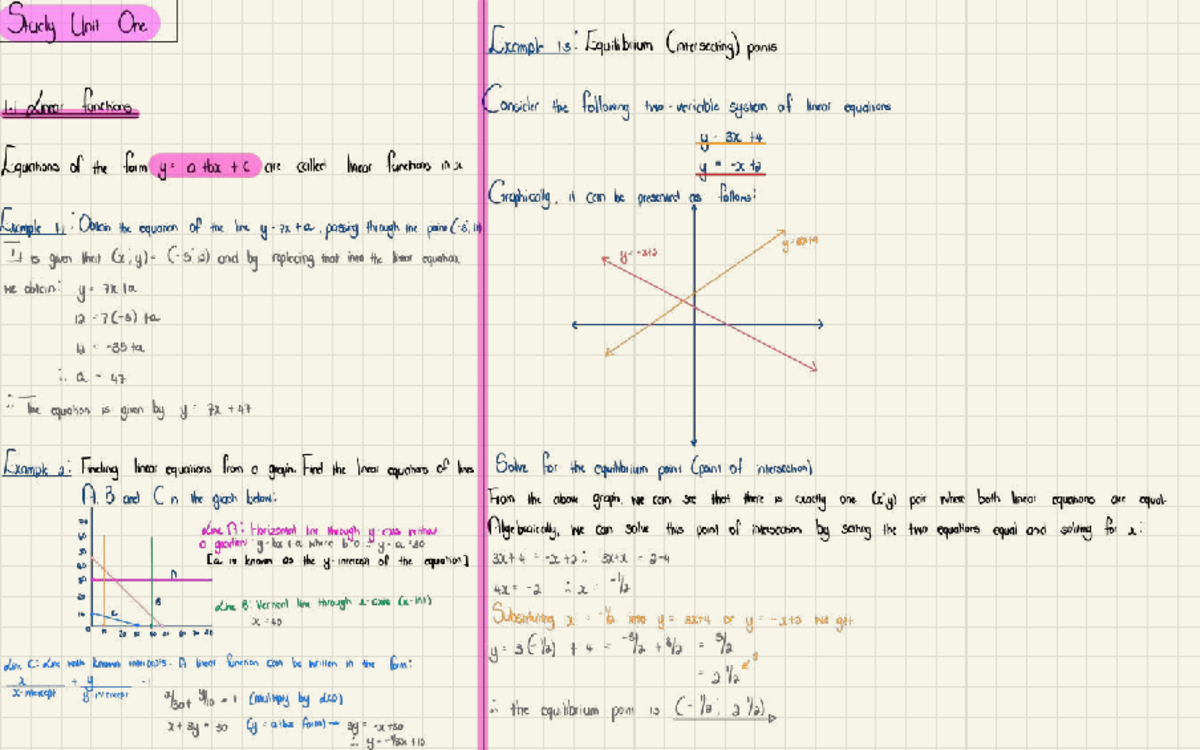 Study Unit One
1.1 Linear functions
Equations of the form y = a + bx + c are called linear functions in x
Example 1.1: Obtain the equation of the line y = 7x + a, passing through the point (-5; 12)
It is given that (x; y) = (-5; 12) and by replacing that into the linear equation
we obtain: y = 7x + a
12 = 7(-5) + a
12 = -35 + a
∴ a = 47
∴ The equation is given by y = 7x + 47
Example 2: Finding linear equations from a graph. Find the linear equations of lines
A, B and C in the graph below:
Line A: Horizontal line through y-axis without
a gradient: y = bx + a where b = 0 ∴ y = a = 30
[a is known as the y-intercept of the equation]
A
B
C
Line B: Vertical line through x-axis (x-int)
x = 40
Line C: Line with known intercepts. A linear function can be written in the form:
x/x-intercept + y/y-intercept = 1
x/30 + y/10 = 1 (multiply by
x + 3y = 30 (y = a + bx form) → 3y = -x + 30
∴ y = -1/3x + 10
Example 1.3: Equilibrium (intersecting) points
Consider the following two-variable system of linear equations
y = 3x + 4
y = -x + 2
Graphically, it can be presented as follows:
y = -x+2
y = 3x+4
Solve for the equilibrium point (point of intersection)
From the above graph, we can see that there is exactly one (x; y) pair where both linear equations are equal.
Algebraically, we can solve this point of intersection by setting the two equations equal and solving for x:
3x + 4 = -x + 2 ∴ 3x + x = 2 - 4
4x = -2 ∴ x = -1/2
Substituting x = -1/2 into y = 3x+4 or y = -x+2 we get
y = 3(-1/2) + 4 = -3/2 + 8/2 = 5/2
= 2 1/2
∴ the equilibrium point is (-1/2; 2 1/2)